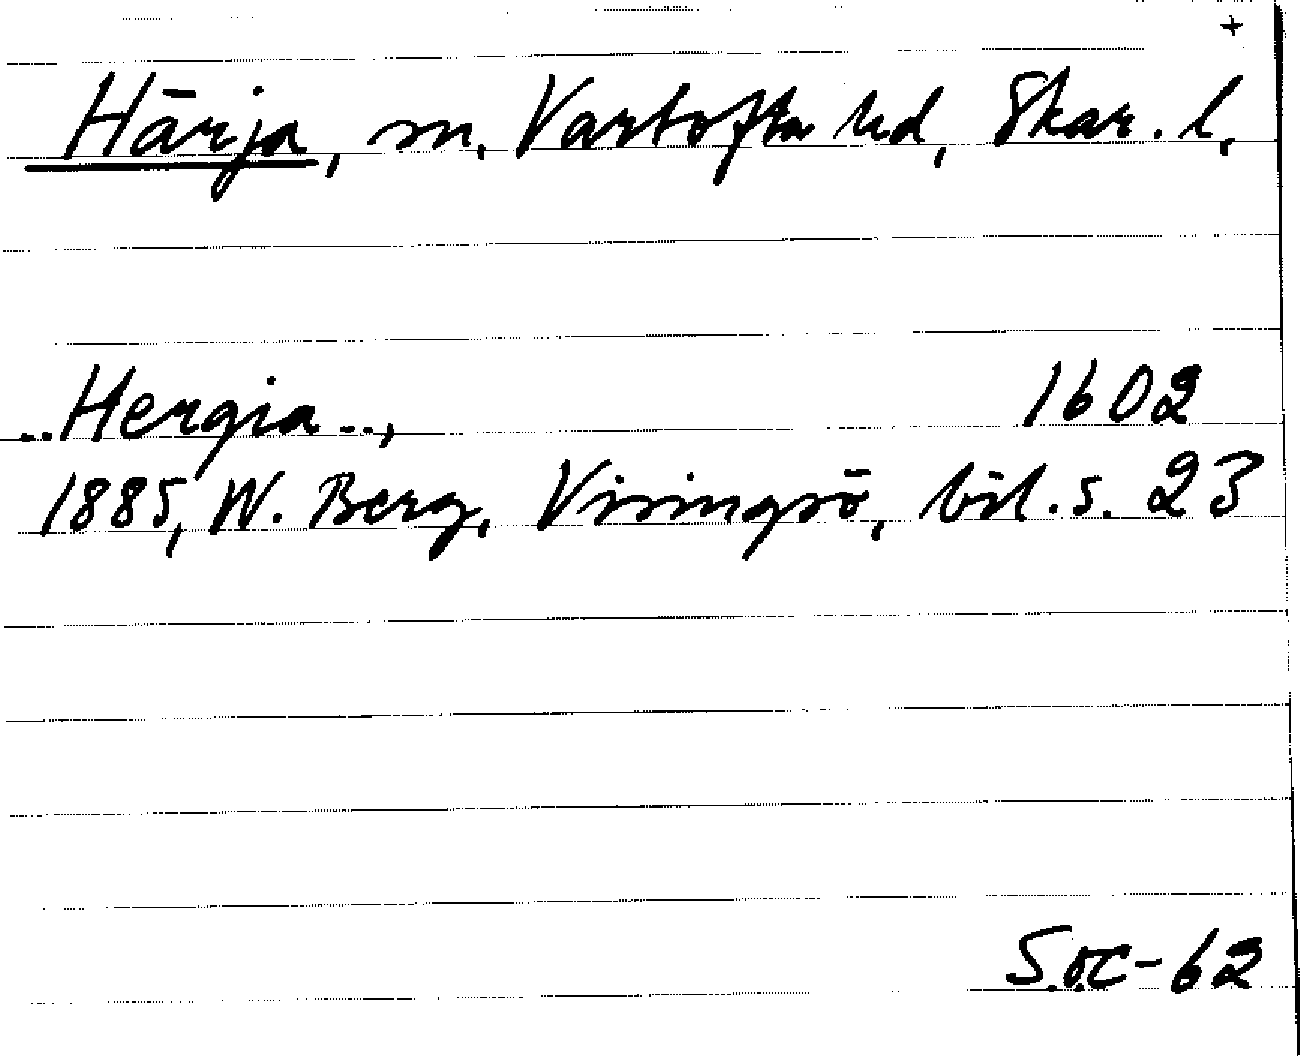 +
Härja, sn, Vartofta hd, Skar. l.
..Hergia.., 1602
1885, W. Berg, Visingsö, bil. s. 23
S.oc-62